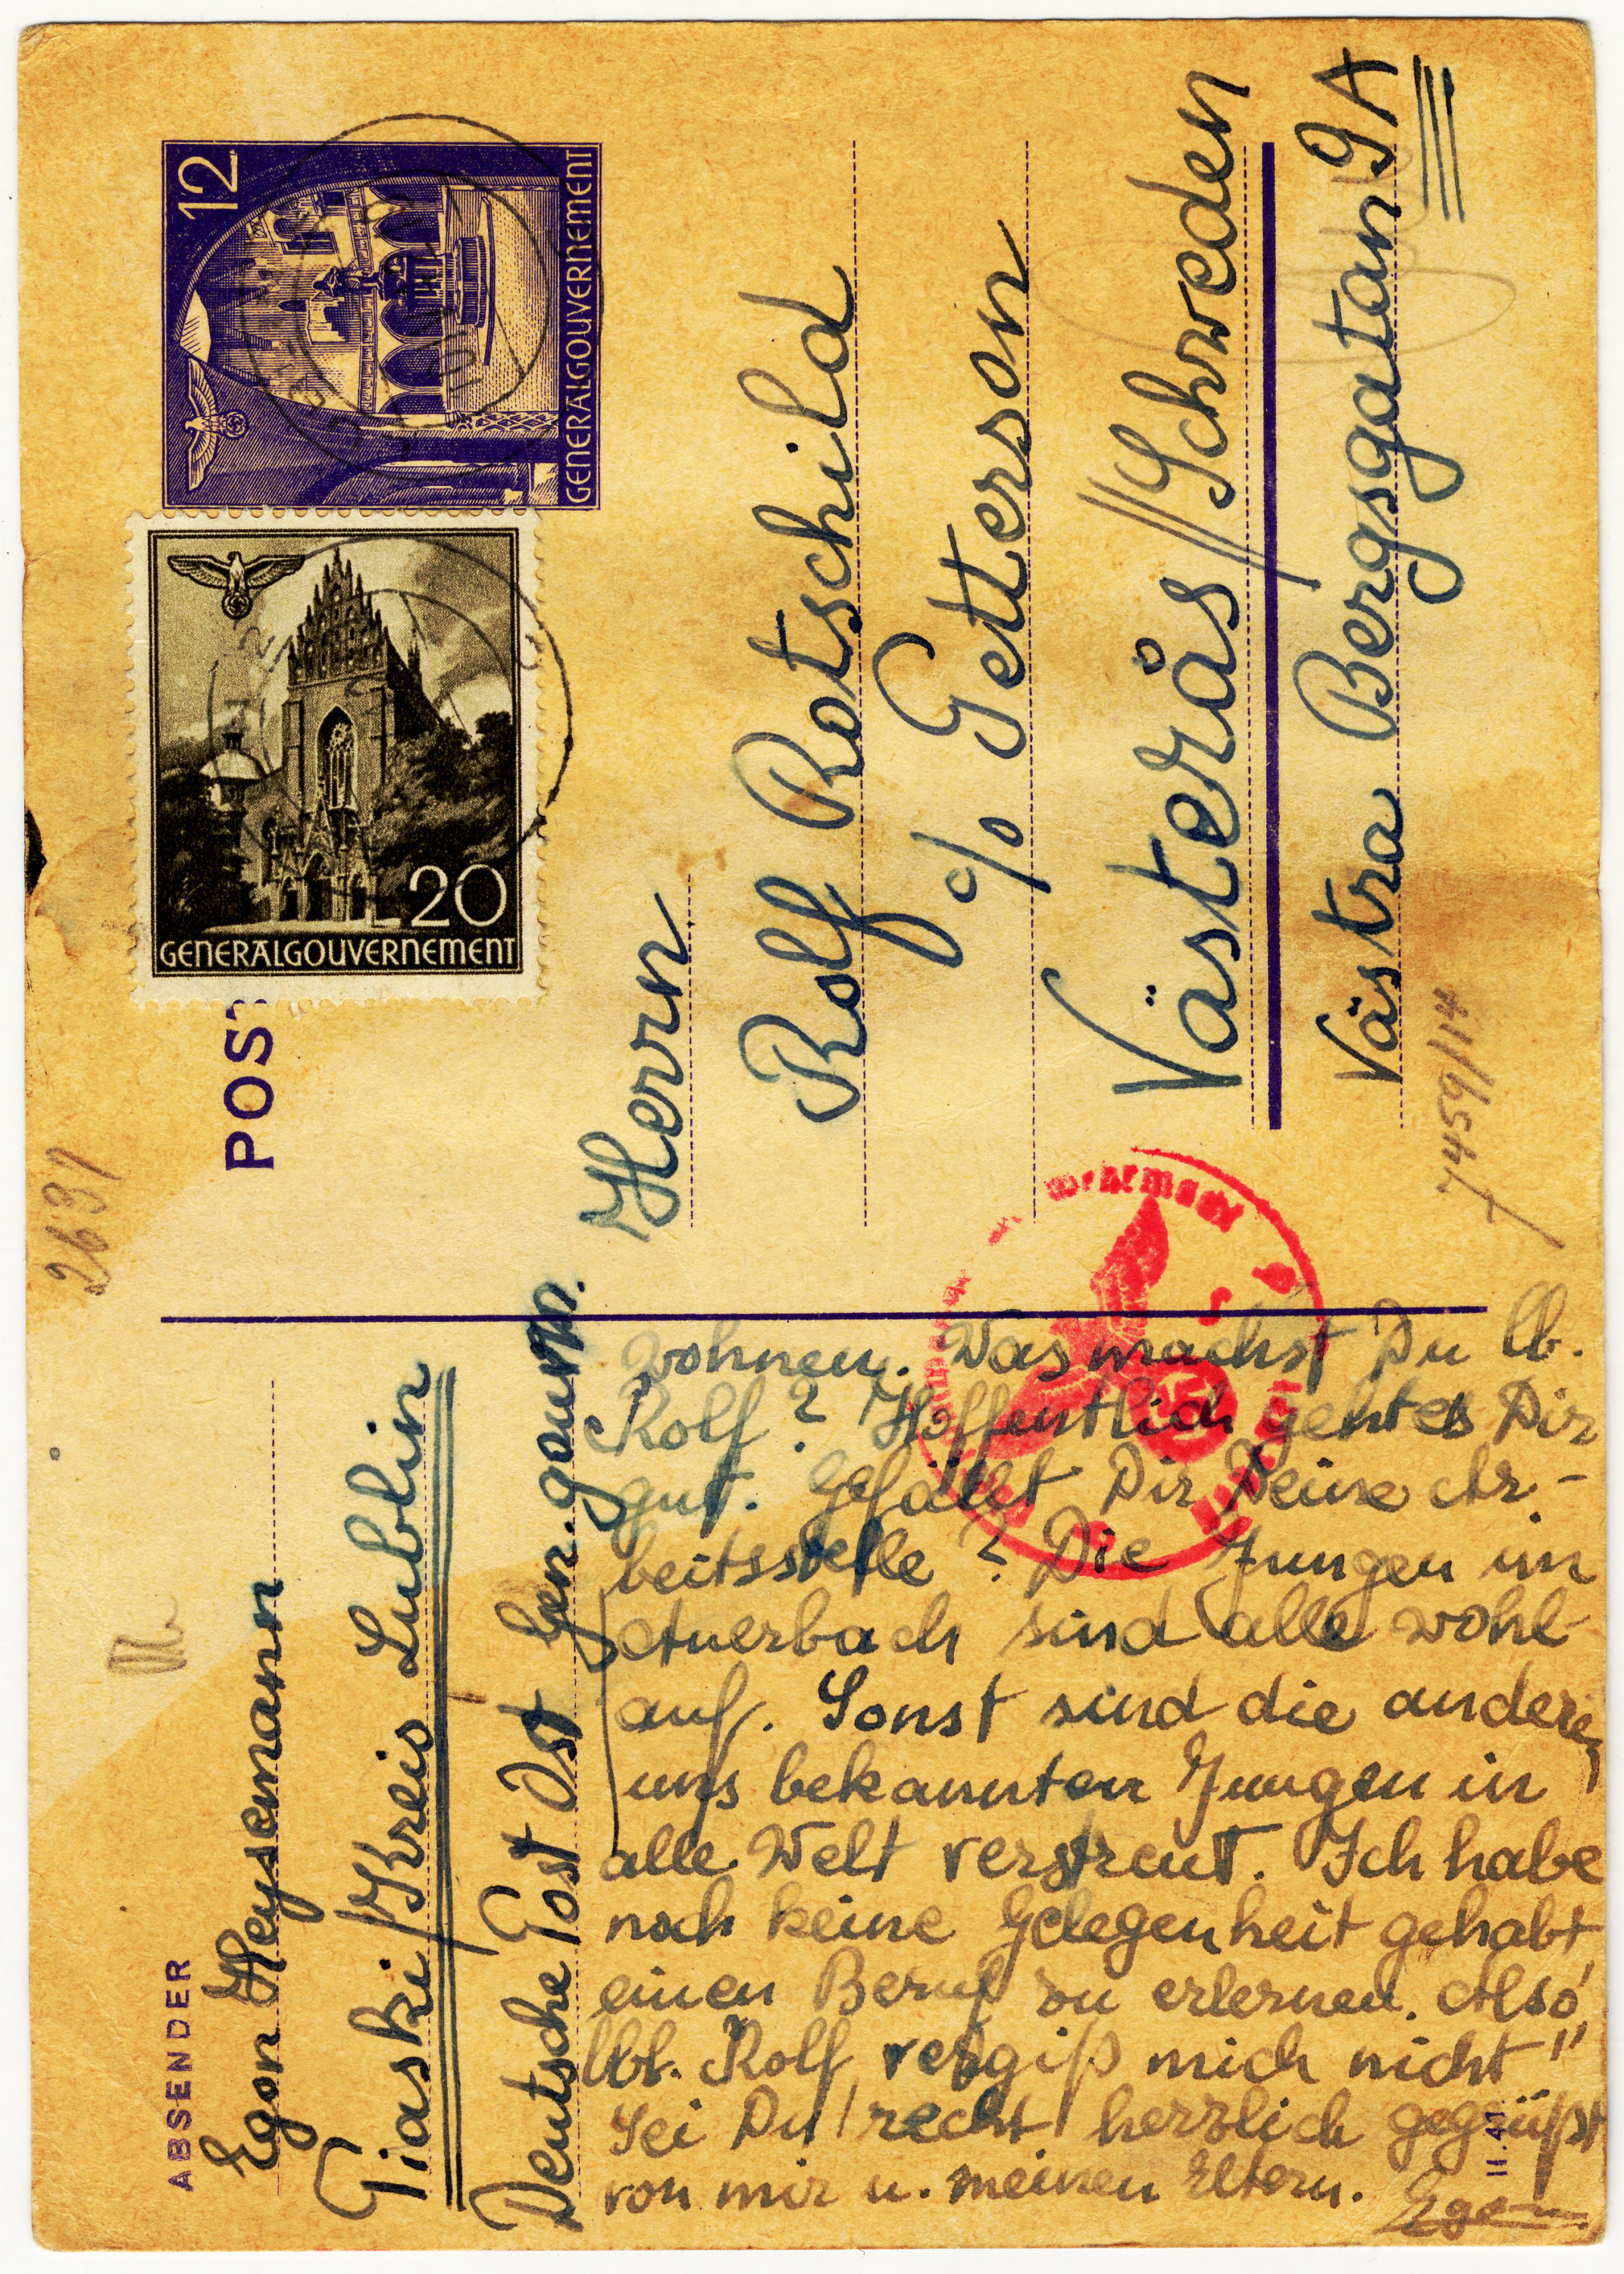 ABSENDER
Egon Heysemann
Piaski/Kreis Lublin
Deutsche Post Ost Gen. gouvn.
wohnen. Was machst Du lb.
Rolf? Hoffentlich geht es Dir
gut. Gefällt Dir Deine Ar-
beitsstelle? Die Jungen in
Auerbach sind alle wohl
auf. Sonst sind die anderen
uns bekannten Jungen in
alle Welt verstreut. Ich habe
noch keine Gelegenheit gehabt,
einen Beruf zu erlernen. Also
lbl. Rolf, vergiß mich nicht"
Sei Du recht herzlich gegrüßt
von mir u. meinen Eltern. Egon.
II.41.
2631
POST
GENERALGOUVERNEMENT
20
GENERALGOUVERNEMENT
12
Herrn
Rolf Rotschild
c/o Petterson
Västerås//Schweden
Västra Bergsgatan 9A
7459/114
Wehrmacht